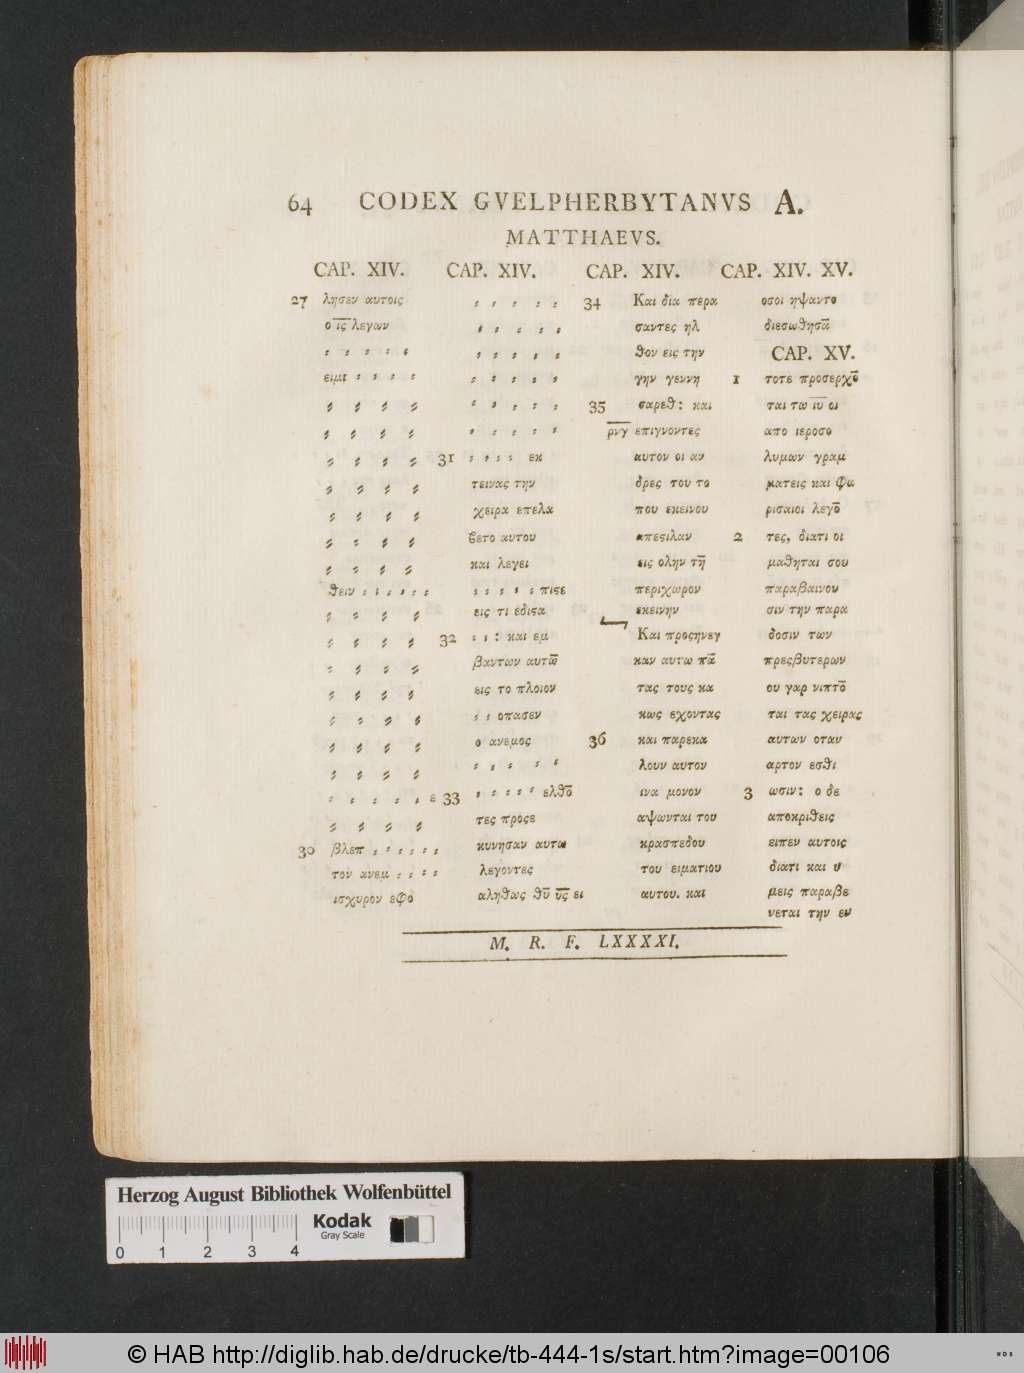 64 CODEX GVELPHERBYTANVS A.
MATTHAEVS.
CAP. XIV.
27 λησεν αυτοις
ο ῑς̄ λεγων
ειμι
θειν
ε
30 βλεπ
τον ανεμ
ισχυρον εφο
CAP. XIV.
31 εκ
τεινας την
χειρα επελα
βετο αυτου
και λεγει
πιϛε
εις τι εδιϛα
32 : και εμ
βαντων αυτω̅
εις το πλοιον
οπασεν
ο ανεμος
33 ελθο̅
τες προςε
κυνησαν αυτω
λεγοντες
αληθως θ̅υ̅ υ̅ς̅ ει
CAP. XIV.
34 Και δια περα
σαντες ηλ
θον εις την
γην γεννη
35 σαρεθ: και
ρ̅ν̅γ̅ επιγνοντες
αυτον οι αν
δρες του το
που εκεινου
απεϛιλαν
εις ολην τη̅
περιχωρον
εκεινην
Και προςηνεγ
καν αυτω πα̅
τας τους κα
κως εχοντας
36 και παρεκα
λουν αυτον
ινα μονον
αψωνται του
κρασπεδου
του ειματιου
αυτου. και
CAP. XIV. XV.
οσοι ηψαντο
διεσωθησα̅
CAP. XV.
1 τοτε προσερχο̅
ται τω ι̅υ̅ οι
απο ιεροσο
λυμων γραμ
ματεις και φα
ρισαιοι λεγο̅
2 τες, διατι οι
μαθηται σου
παραβαινου
σιν την παρα
δοσιν των
πρεςβυτερων
ου γαρ νιπτο̅
ται τας χειρας
αυτων οταν
αρτον εσθι
3 ωσιν: ο δε
αποκριθεις
ειπεν αυτοις
διατι και υ
μεις παραβε
νεται την εν
M. R. F. LXXXXI.
Herzog August Bibliothek Wolfenbüttel
Kodak
Gray Scale
0 1 2 3 4
© HAB http://diglib.hab.de/drucke/tb-444-1s/start.htm?image=00106